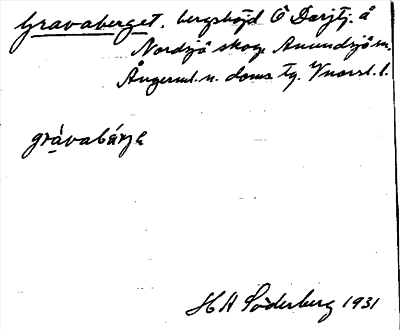 Gravaberget, bergshöjd Ö Darjtj. å
Nordsjö skog Anundsjö sn.
Ångerml. n. doms tg. Vnorrl. l.
gràvabárje
H A Söderberg 1931